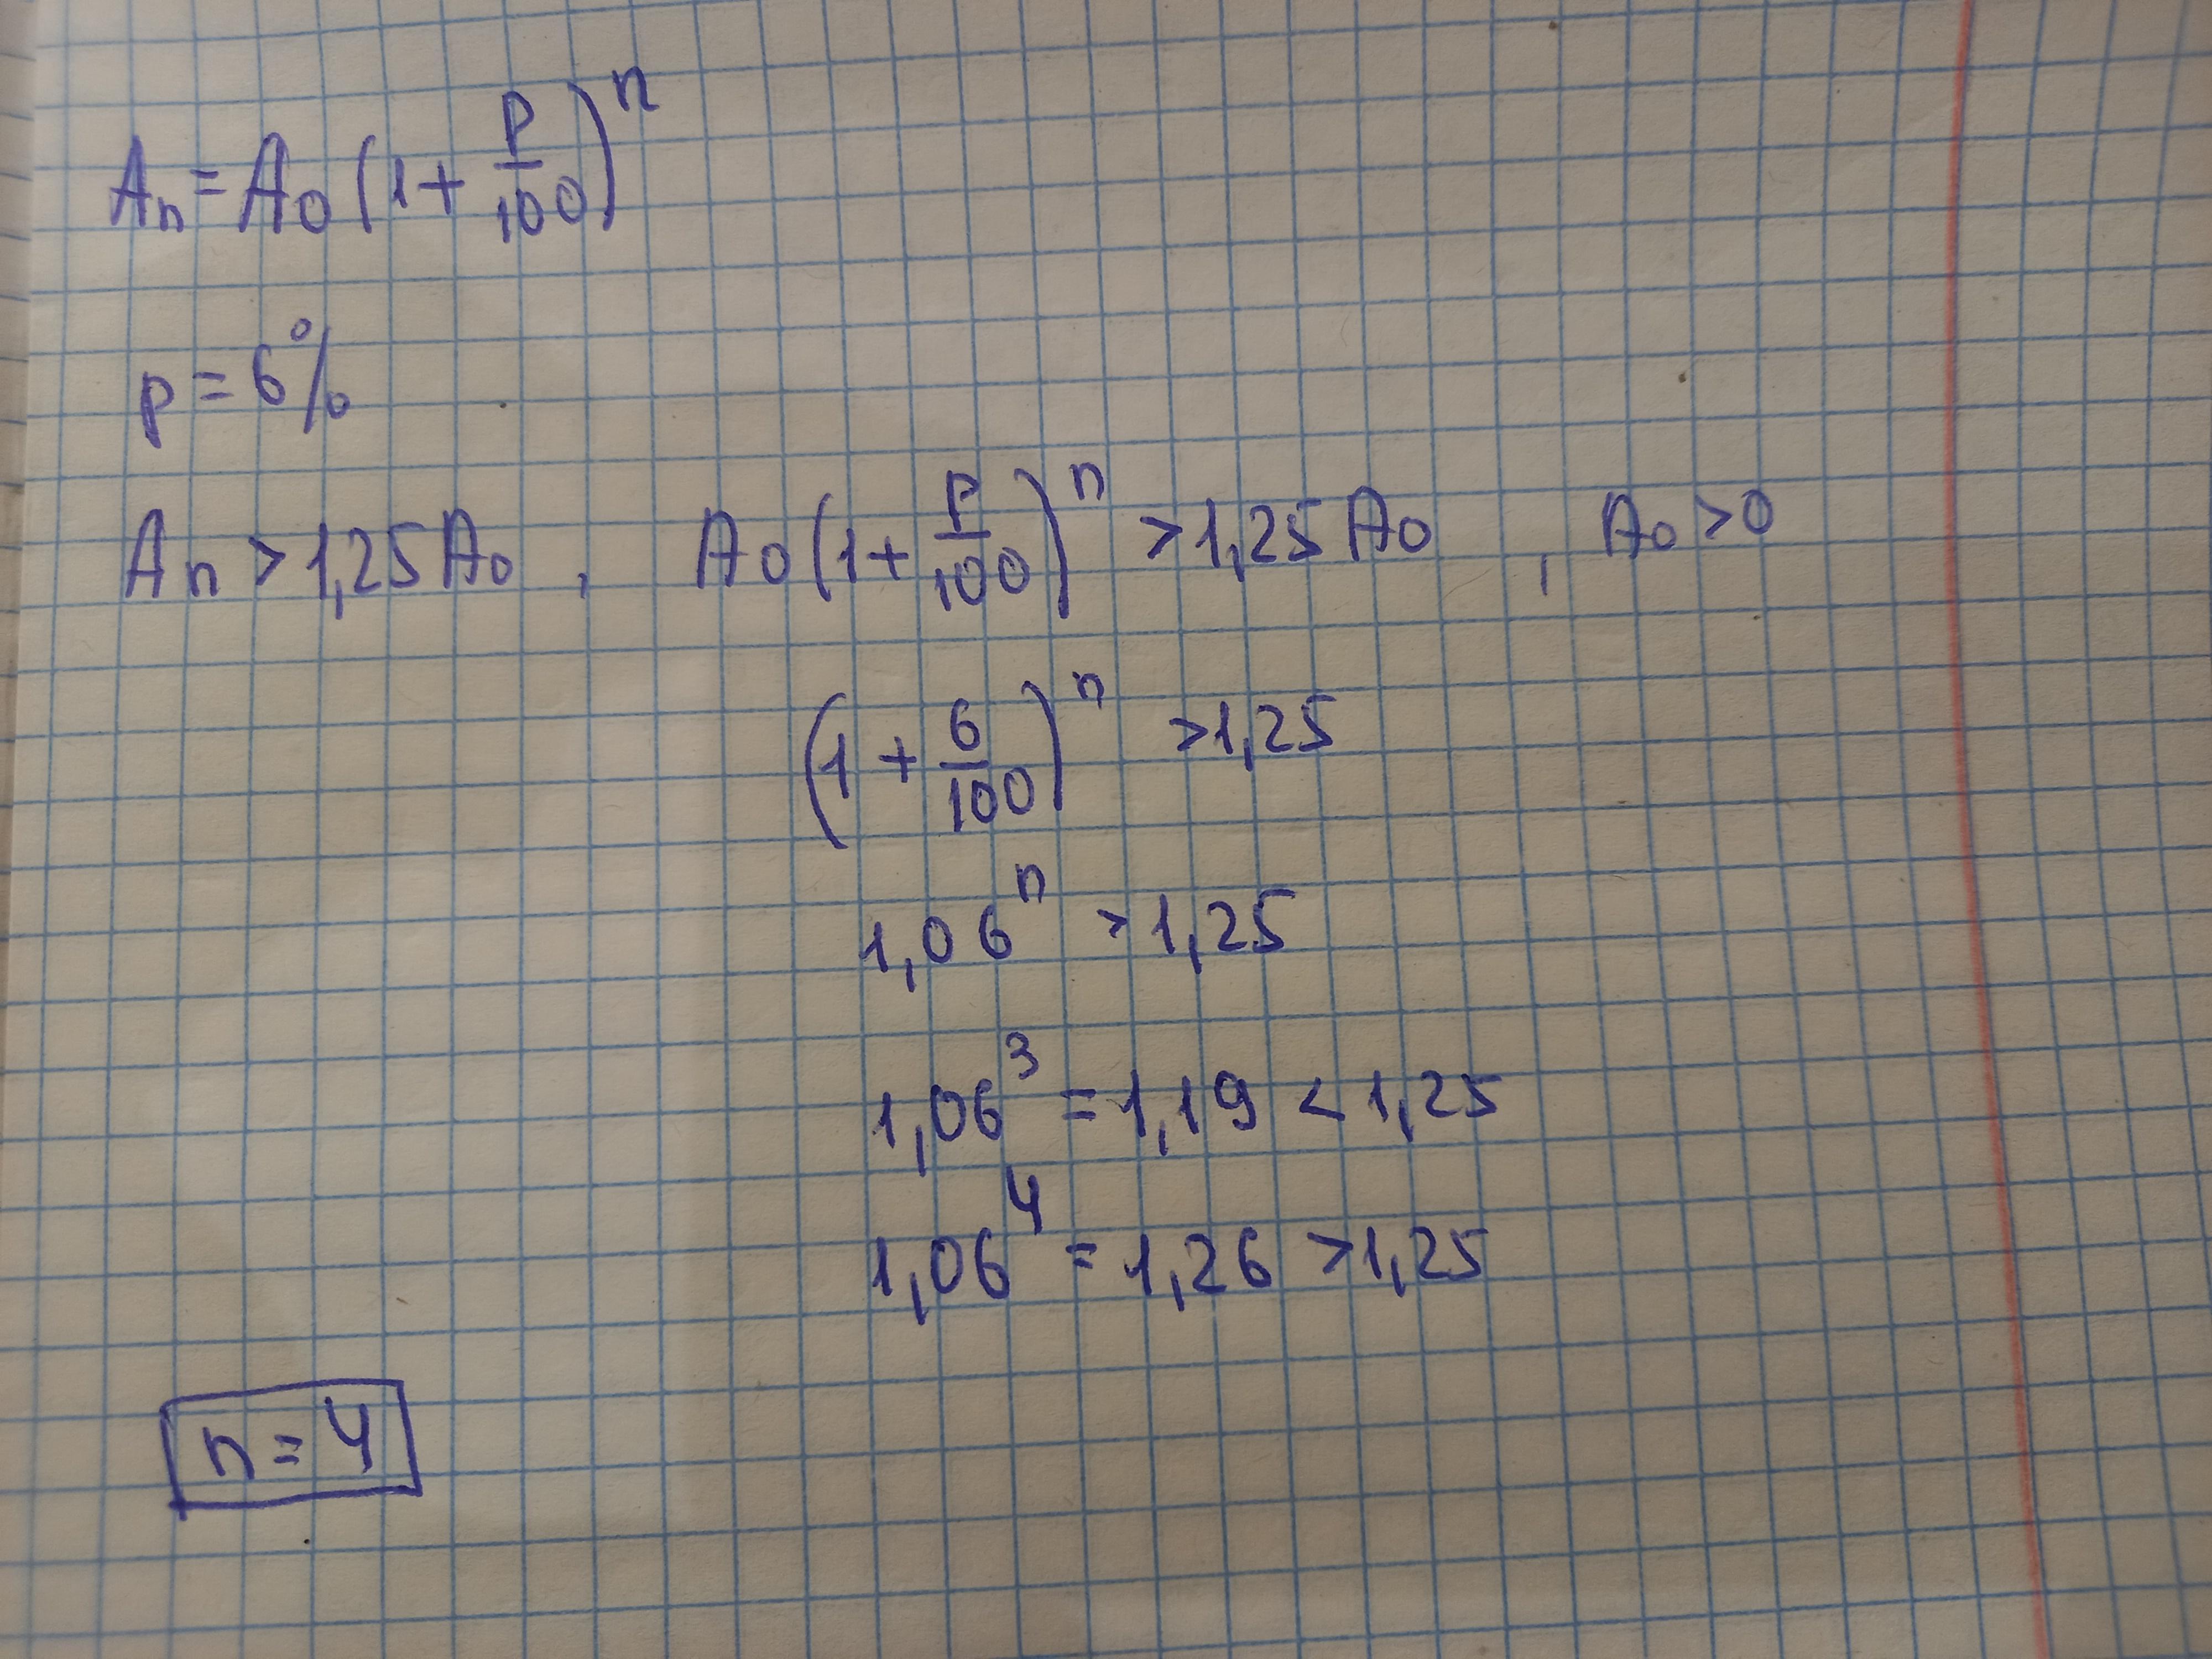 Aₙ = A₀ (1 + P/100)ⁿ
p = 6%
Aₙ > 1,25 A₀ , A₀ (1 + P/100)ⁿ > 1,25 A₀ , A₀ > 0
(1 + 6/100)ⁿ > 1,25
1,06ⁿ > 1,25
1,06³ = 1,19 < 1,25
1,06⁴ = 1,26 > 1,25
n = 4